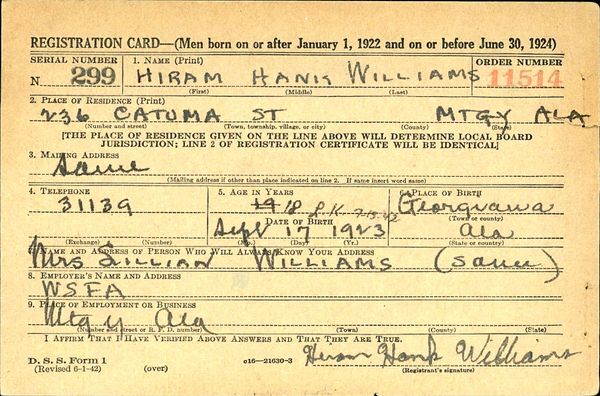 REGISTRATION CARD—(Men born on or after January 1, 1922 and on or before June 30, 1924)
SERIAL NUMBER 1. NAME (Print) ORDER NUMBER
N 299 HIRAM HANK WILLIAMS 11514
(First) (Middle) (Last)
2. PLACE OF RESIDENCE (Print)
236 CATUMA ST MTGY ALA
(Number and street) (Town, township, village, or city) (County) (State)
[THE PLACE OF RESIDENCE GIVEN ON THE LINE ABOVE WILL DETERMINE LOCAL BOARD
JURISDICTION; LINE 2 OF REGISTRATION CERTIFICATE WILL BE IDENTICAL]
3. MAILING ADDRESS
Same
(Mailing address if other than place indicated on line 2. If same insert word same)
4. TELEPHONE 5. AGE IN YEARS 6. PLACE OF BIRTH
31139 19 18 Georgianna
DATE OF BIRTH (Town or county)
Sept 17 1923 Ala
(Exchange) (Number) (Mo.) (Day) (Yr.) (State or country)
7. NAME AND ADDRESS OF PERSON WHO WILL ALWAYS KNOW YOUR ADDRESS
Mrs LILLIAN WILLIAMS (Same)
8. EMPLOYER'S NAME AND ADDRESS
WSFA
9. PLACE OF EMPLOYMENT OR BUSINESS
Mtgy Ala
(Number and street or R. F. D. number) (Town) (County) (State)
I AFFIRM THAT I HAVE VERIFIED ABOVE ANSWERS AND THAT THEY ARE TRUE.
D. S. S. Form 1 Hiram Hank Williams
(Revised 6-1-42) (over) c16—21630-3 (Registrant's signature)